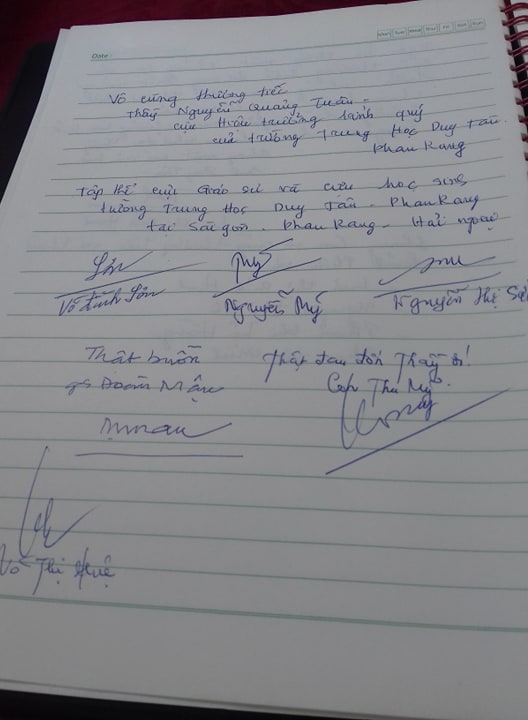 Date
Vô cùng thương tiếc
Thầy Nguyễn Quang Tuấn -
cựu Hiệu trưởng lành quý
của trường Trung Học Duy Tân.
Phan Rang
Tập thể cựu Giáo sư và cựu học sinh
trường Trung Học Duy Tân - Phan Rang
tại Sài gòn - Phan Rang - Hải ngoại
Võ Đình Sơn
Mỹ
Nguyễn Mỹ
Nguyễn Thị
Thật buồn
gs Đoàn Mậu
Thật đau đớn Thầy ơi!
Thu Mỹ.
Võ Thị Huệ